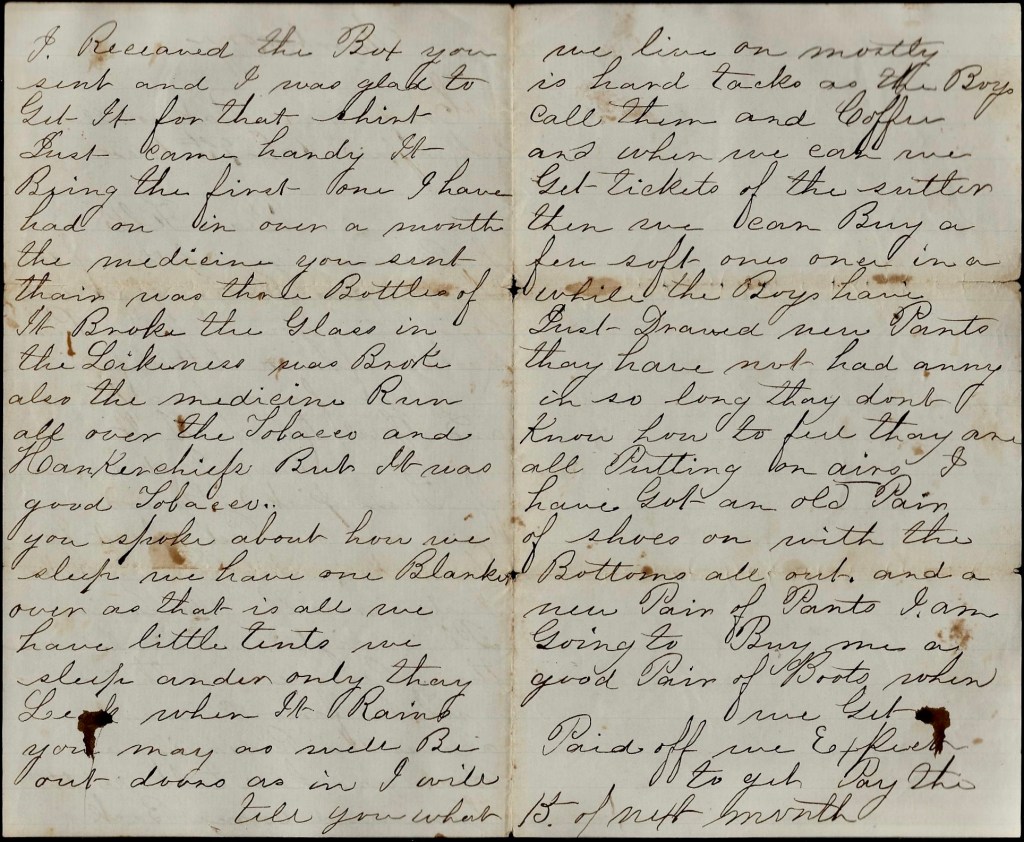 I. Receaved the Box you
sent and I was glad to
Get It for that shirt
Just came handy It
Being the first one I have
had on in over a month
the medicine you sent
thair was three Bottles of
It Broke the Glass in
the Likeness was Broke
also the medicine Run
all over the Tobacco and
Hankerchiefs But It was
good Tobacco..
you spoke about how we
sleep we have one Blanket
over as that is all we
have little tents we
sleep under only thay
Leak when It Rains
you may as well Be
out doors as in I will
tell you what
we live on mostly
is hard tacks as the Boys
call them and Coffee
and when we can we
Get tickets of the sutter
then we can Buy a
few soft ones once in a
while the Boys have
Just Drawed new Pants
thay have not had anny
in so long thay dont
Know how to feel thay are
all Putting on airs I
have Got an old Pair
of shoes on with the
Bottoms all out. and a
new Pair of Pants I. am
Going to Buy me a
good Pair of Boots when
we Get
Paid off we Expect
to get Pay the
15. of next month